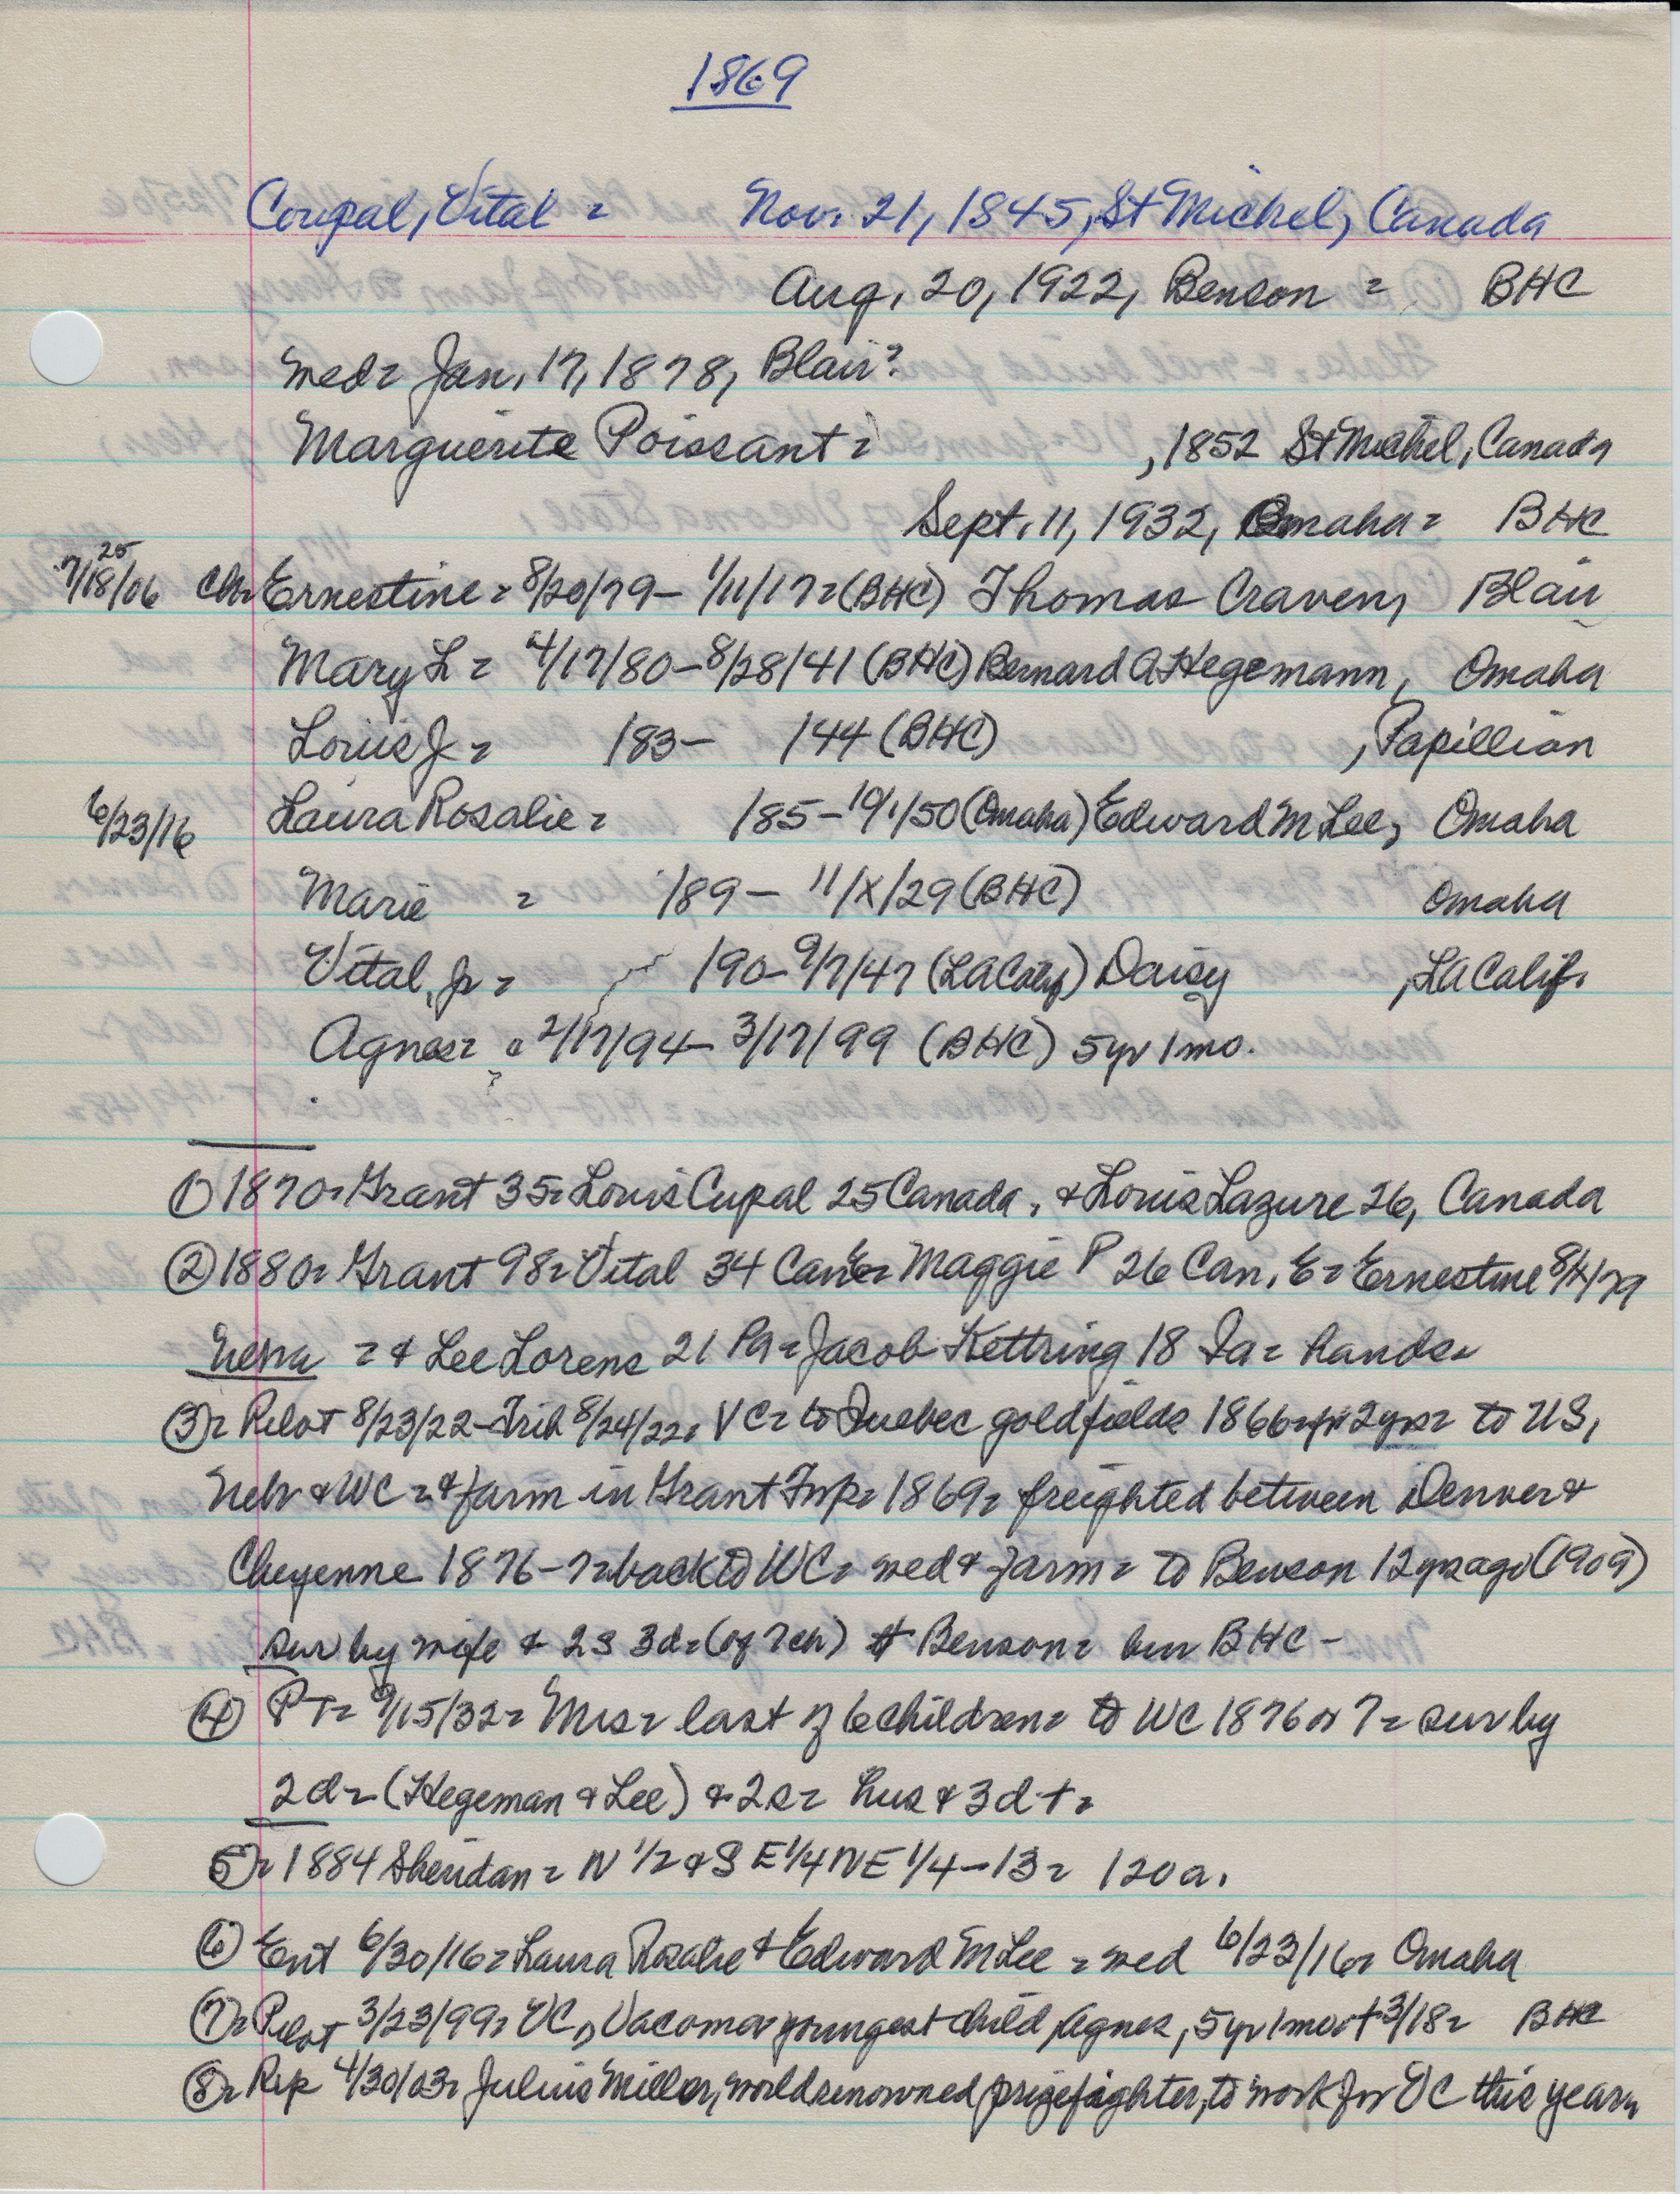 1869
Coupal, Vital = Nov. 21, 1845, St Michel, Canada
Aug. 20, 1922, Benson = BHC
wed = Jan. 17, 1878, Blair?
Marguerite Poissant = , 1852 St Michel, Canada
Sept. 11, 1932, Omaha = BHC
25
7/18/06 Ch = Ernestine = 8/20/79 - 1/11/17 = (BHC) Thomas Craven, Blair
Mary L = 4/17/80 - 8/28/41 (BHC) Bernard A Hegemann, Omaha
Louis J = /83 - /44 (BHC) , Papillion
6/23/16 Laura Rosalie = /85 - 10/1/50 (Omaha) Edward M Lee, Omaha
Marie = /89 - 11/X/29 (BHC) Omaha
Vital, Jr = /90 - 9/7/47 (LA Calif) Daisy , LA Calif.
Agnes = 2/17/94 - 3/17/99 (BHC) 5yr 1mo.
① 1870 = Grant 35 = Louis Cupal 25 Canada, & Louis Lazure 26, Canada
② 1880 = Grant 98 = Vital 34 Can = Maggie P 26 Can, E = Ernestine 8/X/79
Neb = & Lee Lorens 21 Pa = Jacob Kettring 18 Ia = hands =
③ = Pilot 8/23/22 - Trib 8/24/22 = VC = to Quebec goldfields 1866 = 2yrs = to US,
Neb & WC = & farm in Grant Twp = 1869 = freighted between Denver &
Cheyenne 1876-7 = back to WC = wed & farm = to Benson 12 yrs ago (1909)
sur by wife & 2s 3d = (of 7ch) Benson = bur BHC -
④ PT = 9/15/32 = Mrs = last of 6 children = to WC 1876 or 7 = sur by
2d = (Hegeman & Lee) & 2s = hus & 3d + =
5 = 1884 Sheridan = N 1/2 & S E 1/4 NE 1/4 - 13 = 120a.
⑥ Ent 6/30/16 = Laura Rosalie & Edward M Lee = wed 6/23/16 = Omaha
⑦ = Pilot 3/23/99 = VC, Vacoma = youngest child, Agnes, 5yr 1mo = + 3/18 = BHC
⑧ = Rep 4/30/03 = Julius Miller, world renowned prizefighter, to work for VC this year =